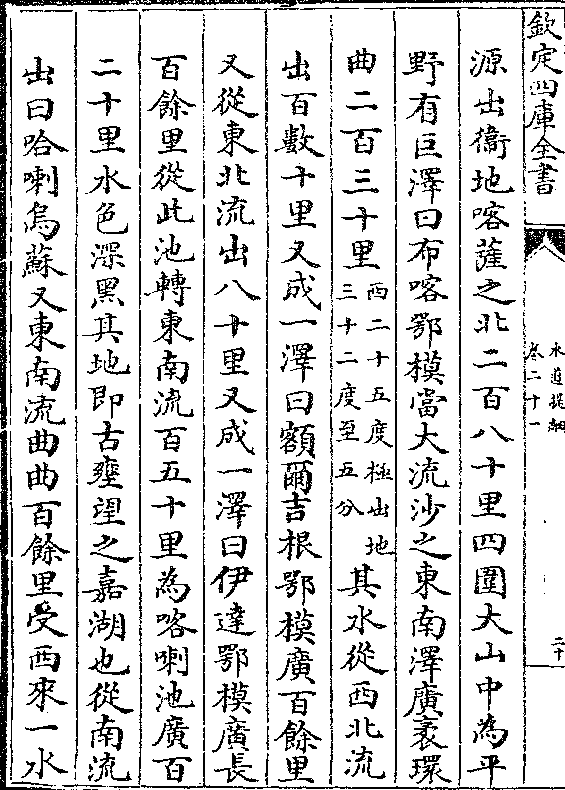 欽定四庫全書
水道提綱
卷二十一
二十
源出衛地喀薩之北二百八十里四圍大山中為平
野有巨澤曰布喀鄂模當大流沙之東南澤廣袤環
曲二百三十里西二十五度極出地三十二度至五分其水從西北流
出百數十里又成一澤曰額爾吉根鄂模廣百餘里
又從東北流出八十里又成一澤曰伊達鄂模廣長
百餘里從此池轉東南流百五十里為喀喇池廣百
二十里水色深黑其地即古雍望之嘉湖也從南流
出曰哈喇烏蘇又東南流曲曲百餘里受西來一水